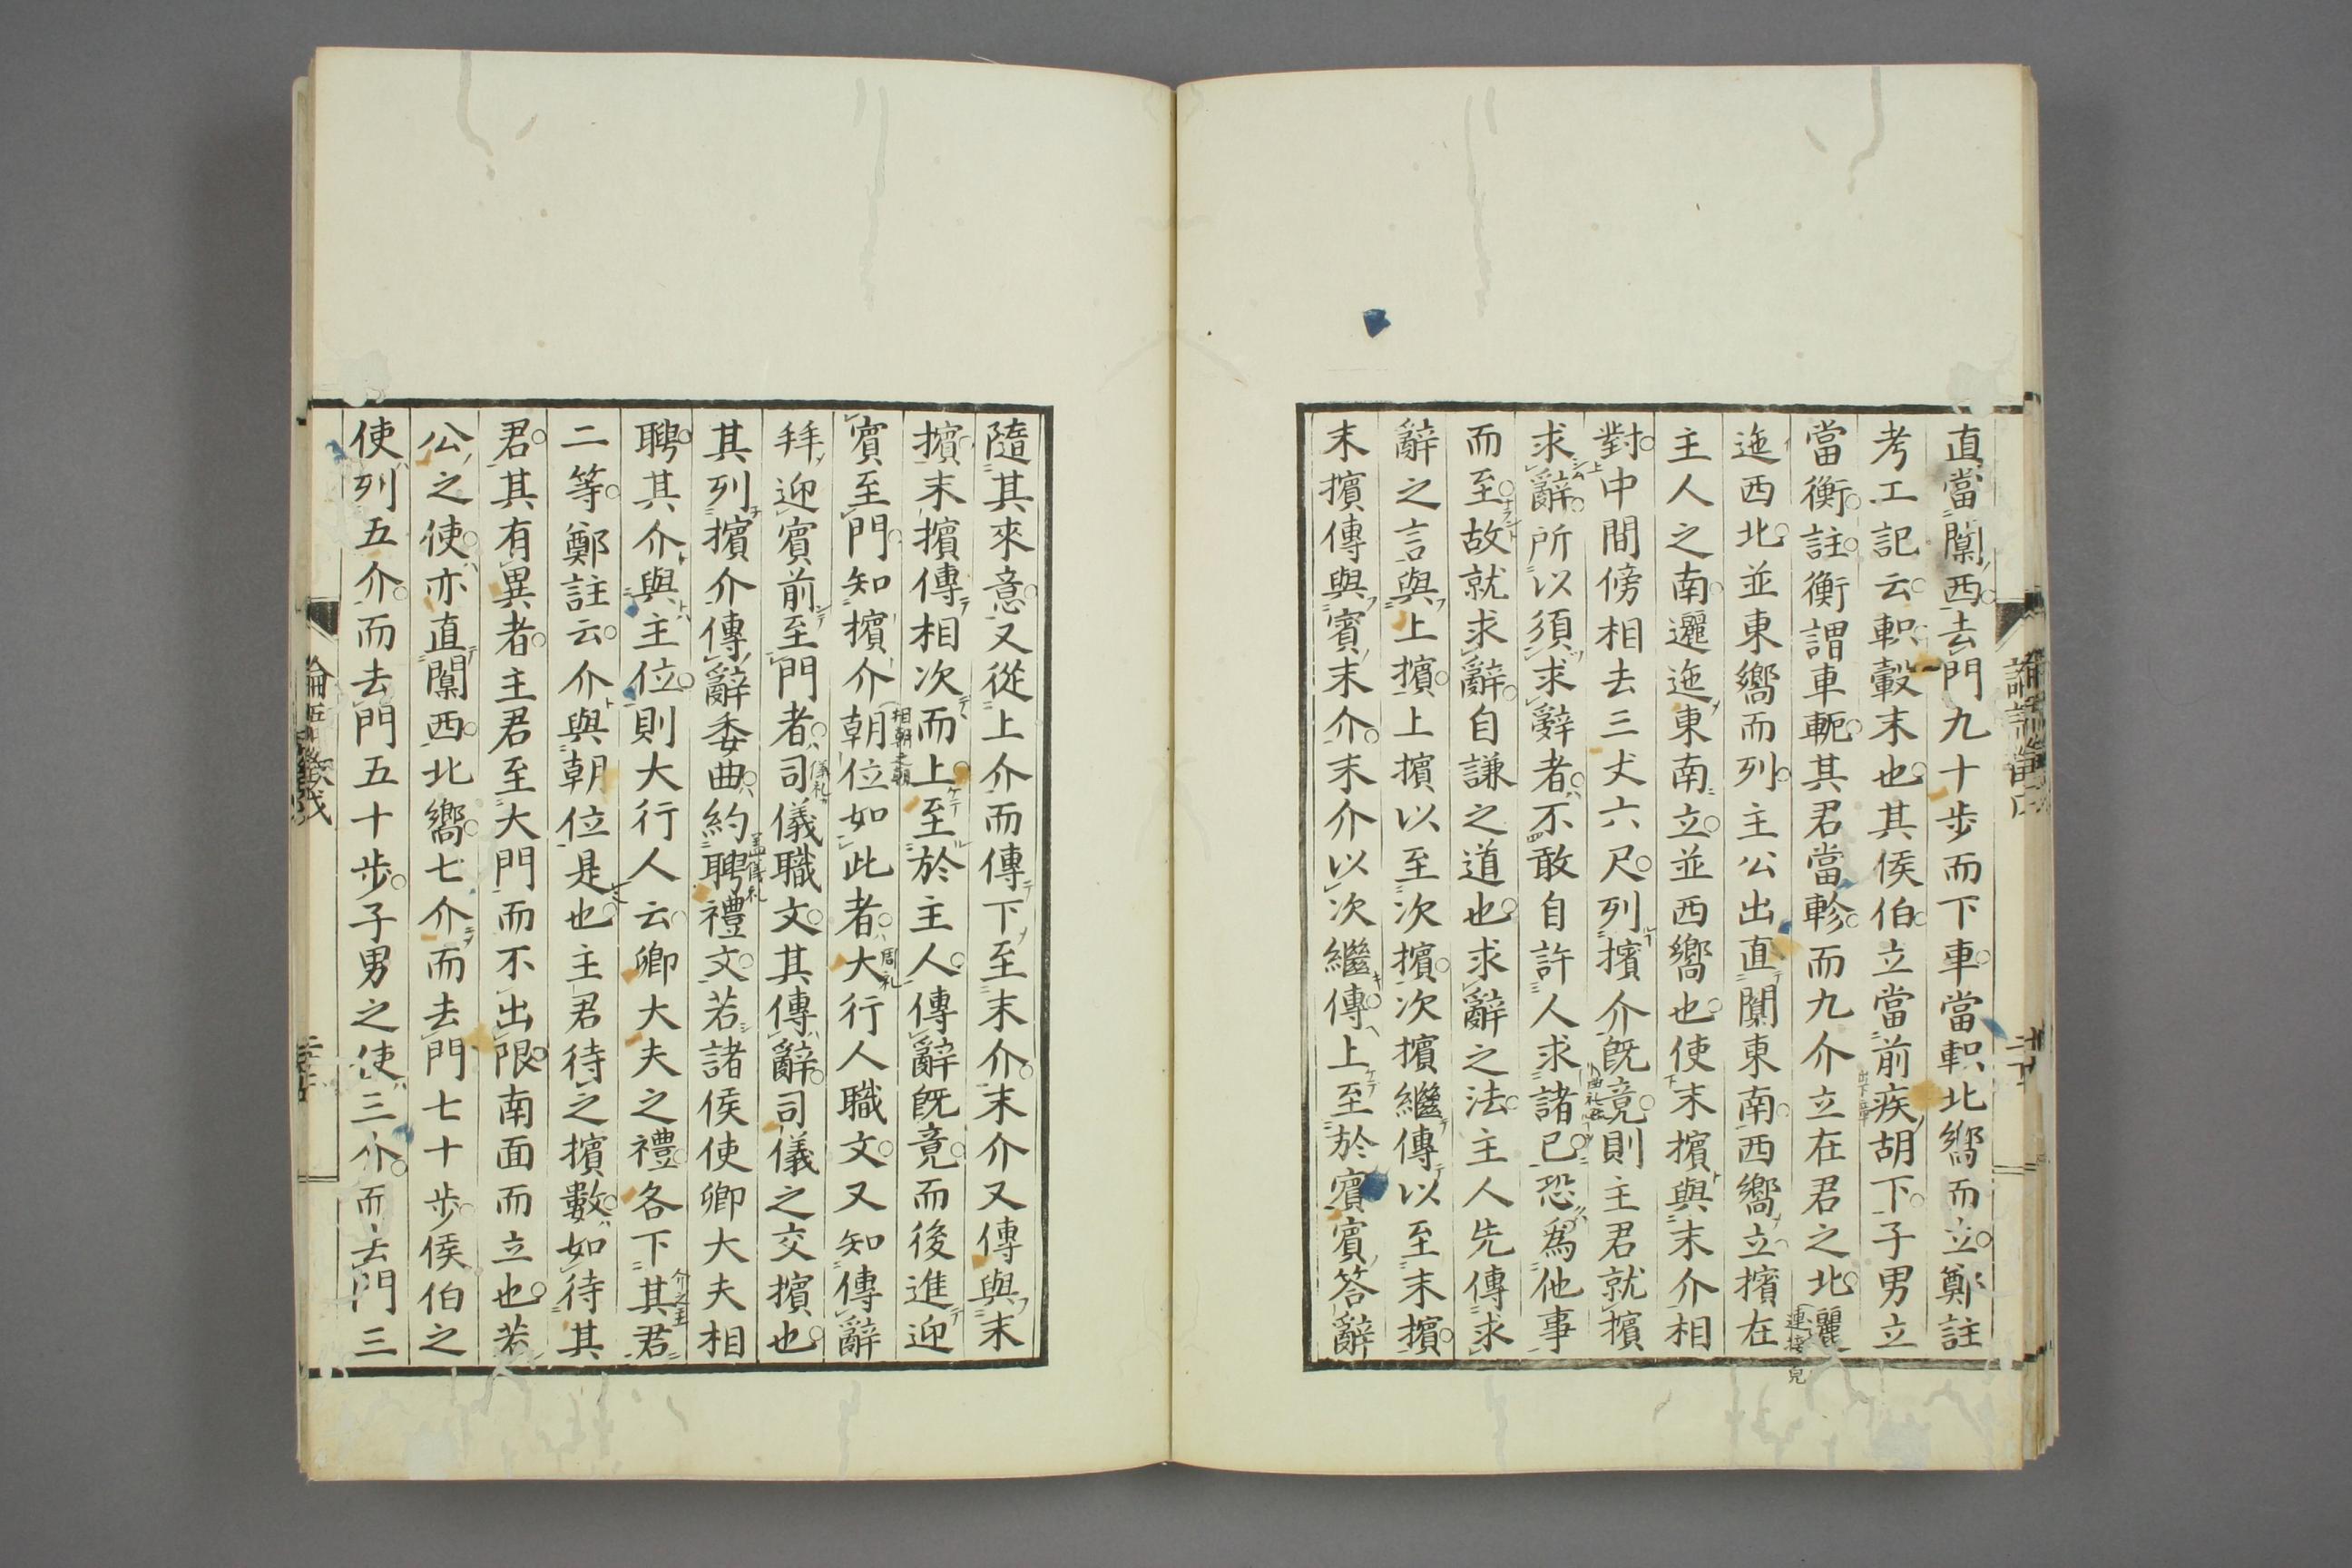 直當闑西去門九十步而下車當軹北嚮而立鄭註
考工記云軹轂末也其侯伯立當前疾胡下子男立
當衡註衡謂車軛其君當軫而九介立在君之北麗
迤西北並東嚮而列主公出直闑東南西嚮立擯在
主人之南邐迤東南立並西嚮也使末擯與末介相
對中間傍相去三丈六尺列擯介既竟則主君就擯
求辭所以須求辭者不敢自許人求諸已恐爲他事
而至故就求辭自謙之道也求辭之法主人先傳求
辭之言與上擯上擯以至次擯次擯繼傳以至末擯
末擯傳與賓末介末介以次繼傳上至於賓賓答辭
隨其來意又從上介而傳下至末介末介又傳與末
擯末擯傳相次而上至於主人傳辭既竟而後進迎
賓至門知擯介朝位如此者大行人職文又知傳辭
拜迎賓前至門者司儀職文其傳辭司儀之交擯也
其列擯介傳辭委曲約聘禮文若諸侯使卿大夫相
聘其介與主位則大行人云卿大夫之禮各下其君
二等鄭註云介與朝位是也主君待之擯數如待其
君其有異者主君至大門而不出限南面而立也若
公之使亦直闑西北嚮七介而去門七十步侯伯之
使列五介而去門五十步子男之使三介而去門三